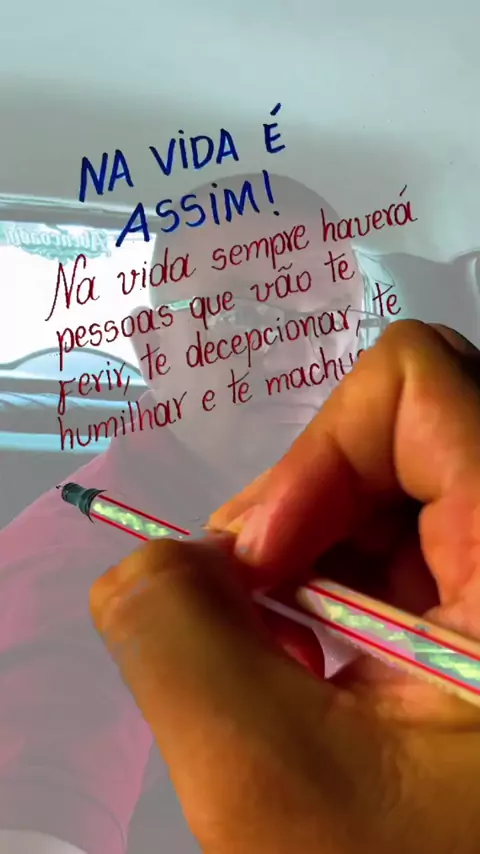 NA VIDA É
ASSIM!
Na vida sempre haverá
pessoas que vão te
ferir, te decepcionar, te
humilhar e te